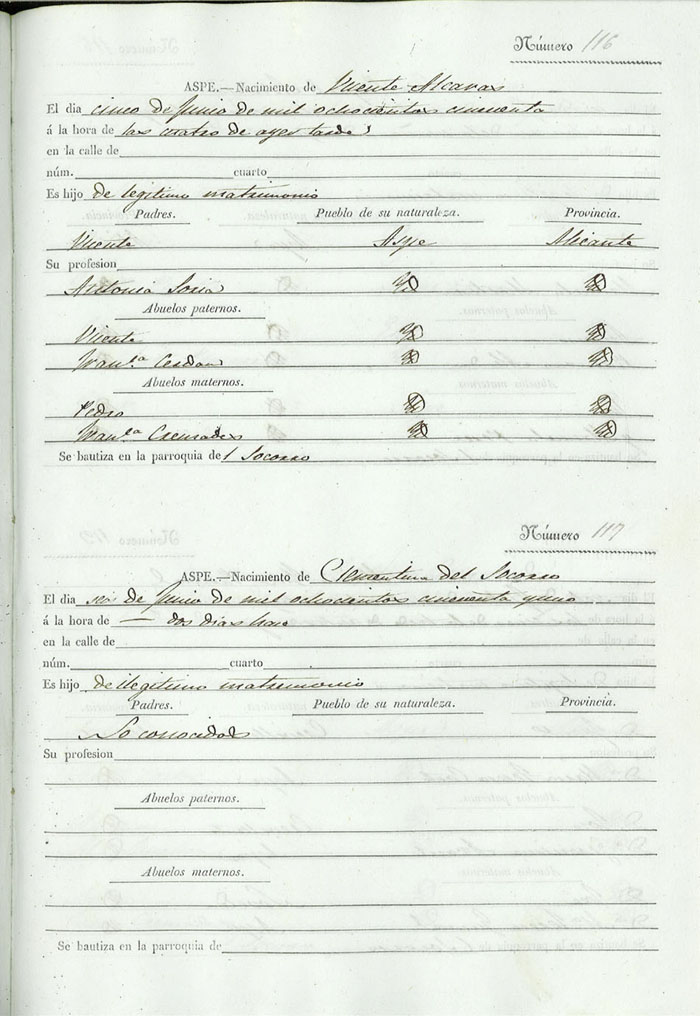 Número 116
ASPE.—Nacimiento de Vicente Alcaras
El dia cinco de Junio de mil ochocientos cincuenta
á la hora de las cuatro de ayer tarde
en la calle de
núm. cuarto
Es hijo de legitimo matrimonio
Padres. Pueblo de su naturaleza. Provincia.
Vicente Aspe Alicante
Su profesion
Antonia Soria
Abuelos paternos.
Vicente
Fran.ca Cerdan
Abuelos maternos.
Pedro
Fran.ca Cremades
Se bautiza en la parroquia del Socorro
Número 117
ASPE.—Nacimiento de Clementina del Socorro
El dia seis de Junio de mil ochocientos cincuenta y uno
á la hora de — dos dias hace
en la calle de
núm. cuarto
Es hijo de ilegitimo matrimonio
Padres. Pueblo de su naturaleza. Provincia.
conocidos
Su profesion
Abuelos paternos.
Abuelos maternos.
Se bautiza en la parroquia de